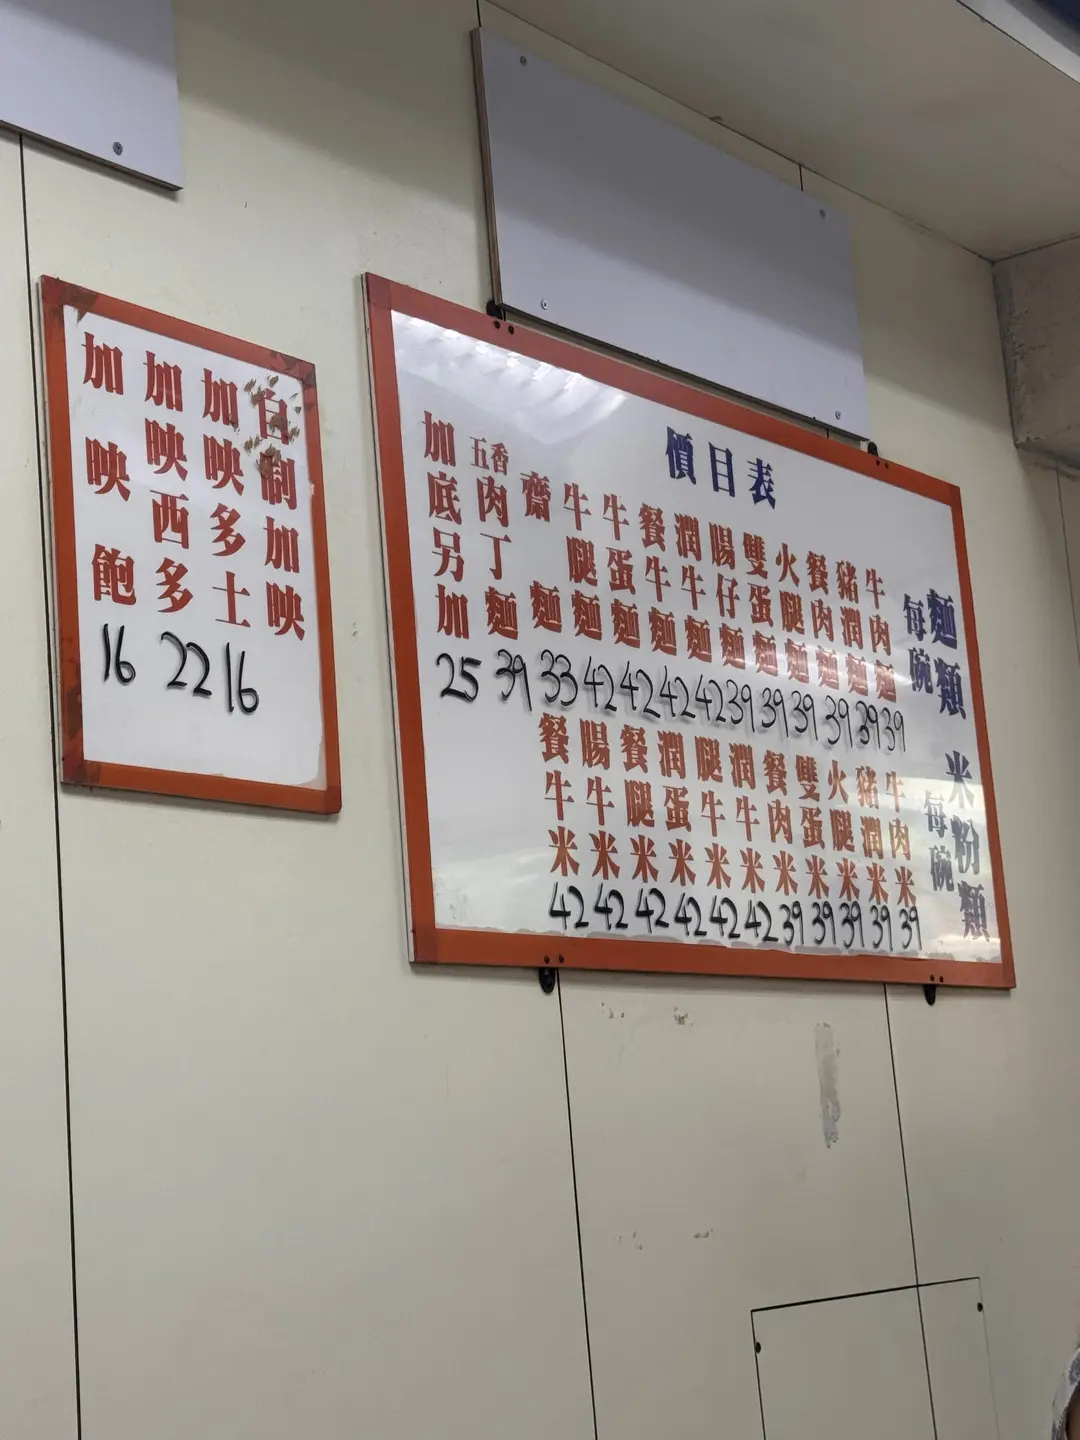 自制加映
加映多士 16
加映西多 22
加映飽 16
價目表
麵類 每碗
牛肉麵 39
豬潤麵 39
餐肉麵 39
火腿麵 39
雙蛋麵 39
腸仔麵 39
潤牛麵 42
餐牛麵 42
牛蛋麵 42
牛腿麵 42
齋麵 33
五香肉丁麵 39
加底另加 25
米粉類 每碗
牛肉米 39
豬潤米 39
火腿米 39
雙蛋米 39
餐肉米 39
潤牛米 42
腿牛米 42
潤蛋米 42
餐腿米 42
腸牛米 42
餐牛米 42